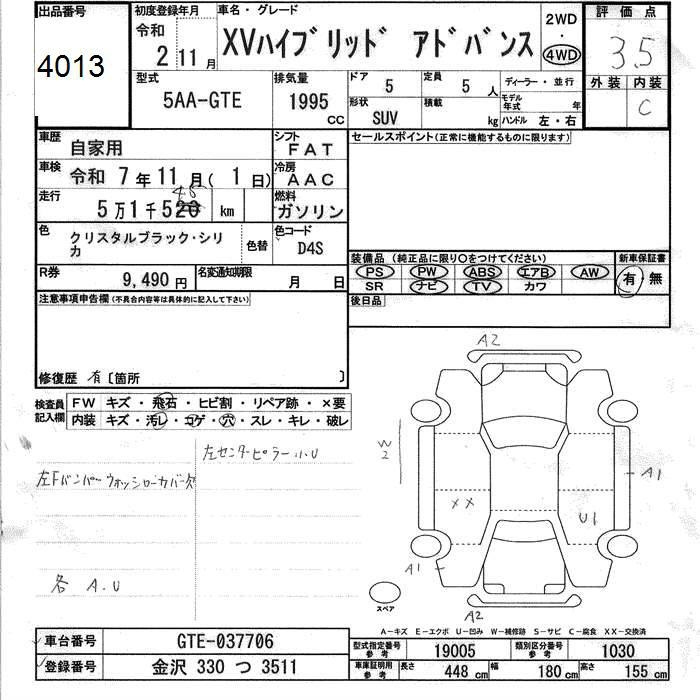 出品番号
4013
初度登録年月
令和
2 11月
車名・グレード
XVハイブリッド アドバンス
2WD
・
4WD
評価点
3.5
外装 内装
C
型式
5AA-GTE
排気量
1995 cc
ドア 5
定員 5 人
形状 SUV
積載 kg
ディーラー・並行
モデル年式 年
ハンドル 左・右
車歴
自家用
シフト
FAT
車検
令和 7年11月(1日)
冷房
AAC
走行
5万1千520 km
48
燃料
ガソリン
色
クリスタルブラック・シリカ
色替
色コード
D4S
R券
9,490 円
名変通知期限 月 日
セールスポイント(正常に機能するものに限ります)
装備品(純正品に限り○をつけてください)
PS PW ABS エアB AW
SR ナビ TV カワ
新車保証書
有・無
後日品
注意事項申告欄(不具合内容等は具体的に記入して下さい)
修復歴 有〔箇所 〕
検査員記入欄
FW キズ・飛石・ヒビ割・リペア跡・×要
内装 キズ・汚レ・コゲ・穴・スレ・キレ・破レ
左センターピラー小U
左Fバンパーウォッシャーカバー欠
各 A.U
A2
W2
A1
XX
U1
A1
A2
スペア
A−キズ E−エクボ U−凹み W−補修跡 S−サビ C−腐食 XX−交換済
車台番号 GTE-037706
登録番号 金沢 330 つ 3511
型式指定番号 参考 19005
類別区分番号 参考 1030
車庫証明用 参考 長さ 448 cm 幅 180 cm 高さ 155 cm